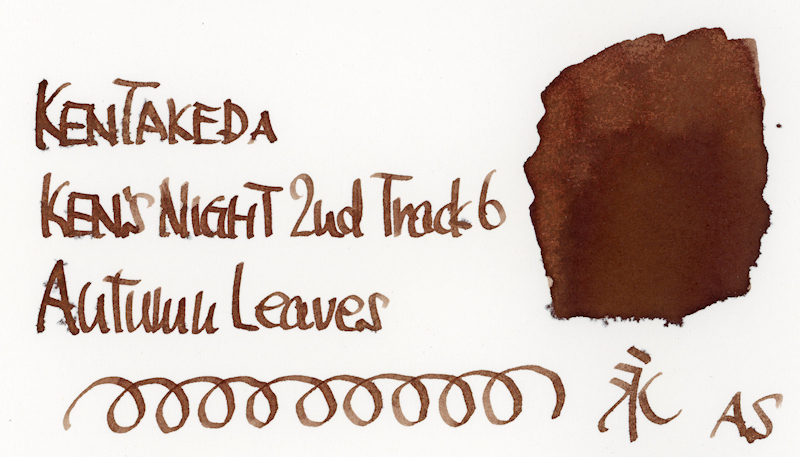 KENTAKEDA
KEN'S NIGHT 2nd Track 6
Autumn Leaves
永 AS